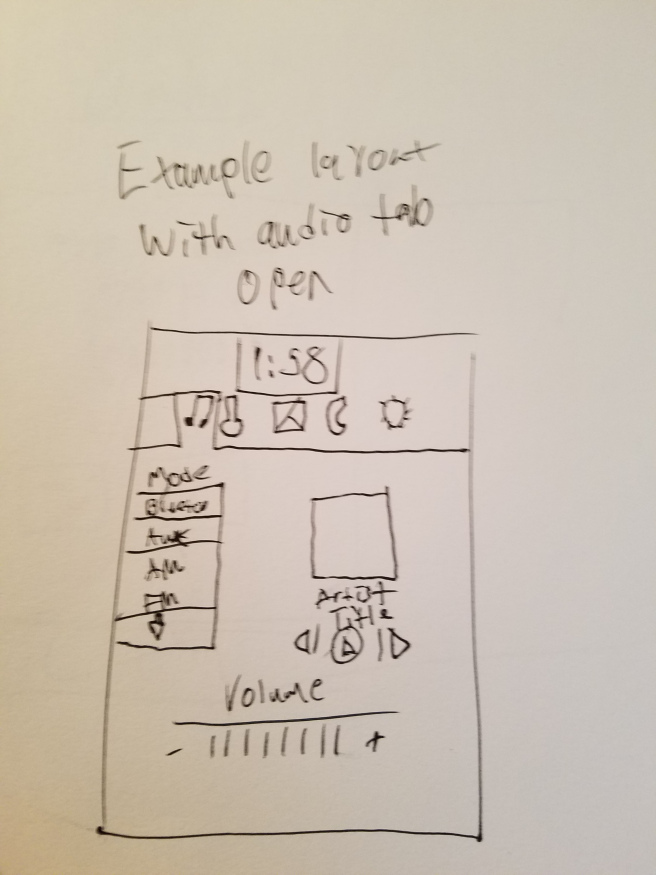 Example layout
with audio tab
open
1:58
Mode
Aux
AM
FM
Artist
Title
Volume
- +